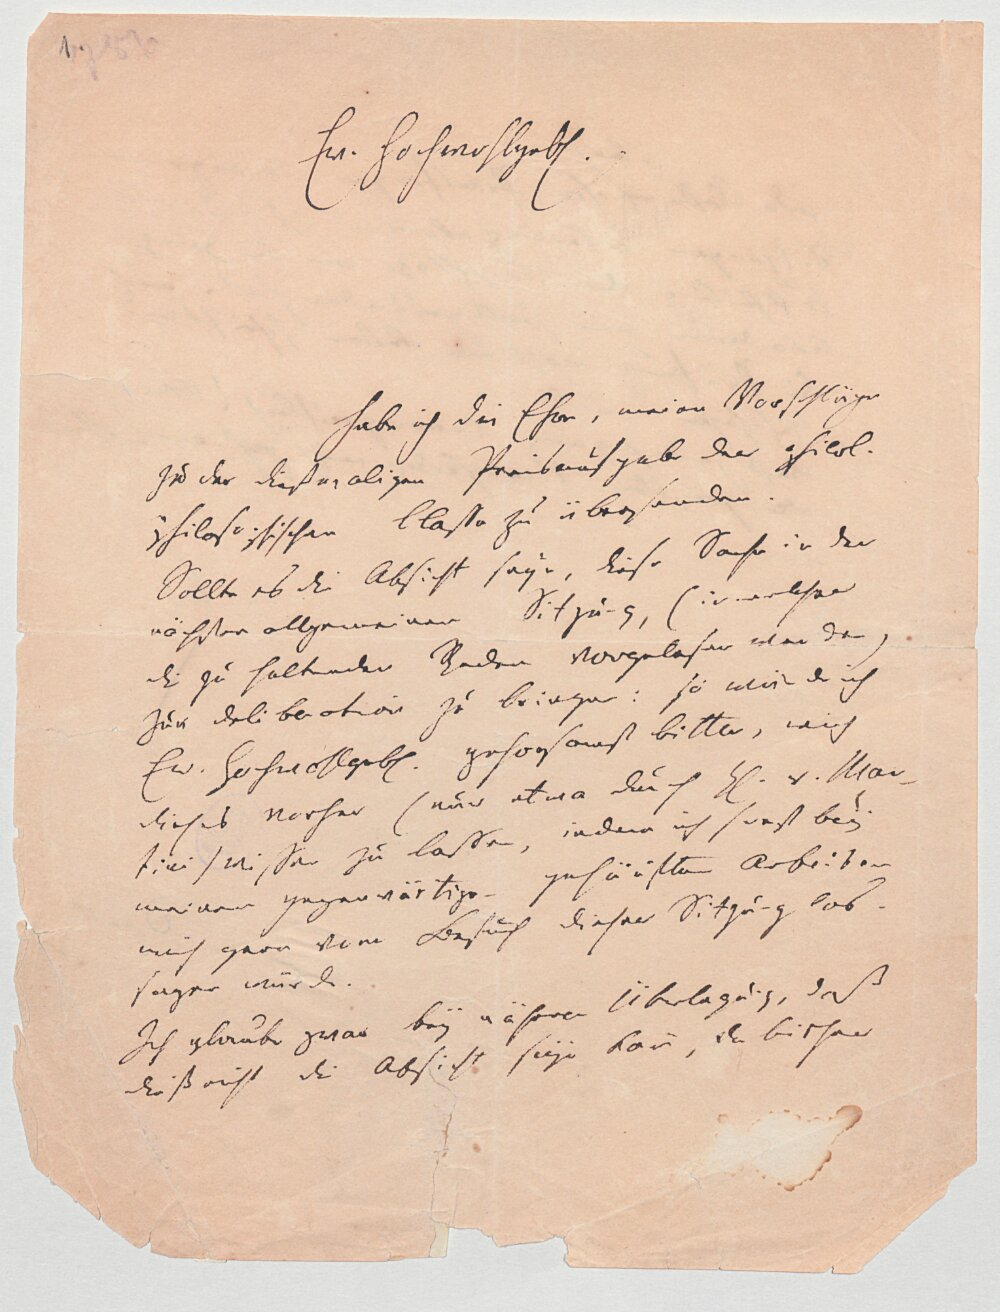 Ew. Hochwohlgeb.
habe ich die Ehre, meine Vorschläge
zu der dießmaligen Preisaufgabe der philol.
philosophischen Classe zu übersenden.
Sollte es die Absicht seyn, diese Sache in der
nächsten allgemeinen Sitzung, (in welcher
die zu haltenden Reden vorgelesen werden)
zur deliberation zu bringen: so würde ich
Ew. Hochwohlgeb. gehorsamst bitten, mich
dieses vorher (nur etwa durch H. v. Mar-
tini) wissen zu lassen, indem ich sonst bey
meinen gegenwärtigen gehäuften Arbeiten
mich gern vom Besuch dieser Sitzung los-
sagen würde.
Ich glaube zwar bey näherer Überlegung, daß
dieß nicht die Absicht seyn kann, da bisher